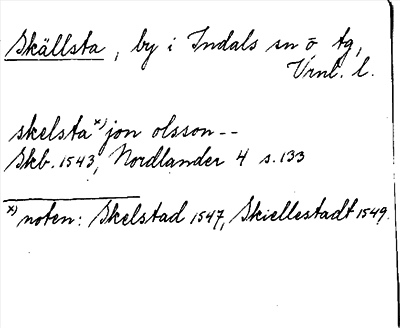 Skällsta, by i Indals sn o tg,
Vrnl. l.
skelsta x) jon olsson--
Skb. 1543, Nordlander 4 s. 133
x) noten: Skelstad 1547, Skiellestadt 1549.